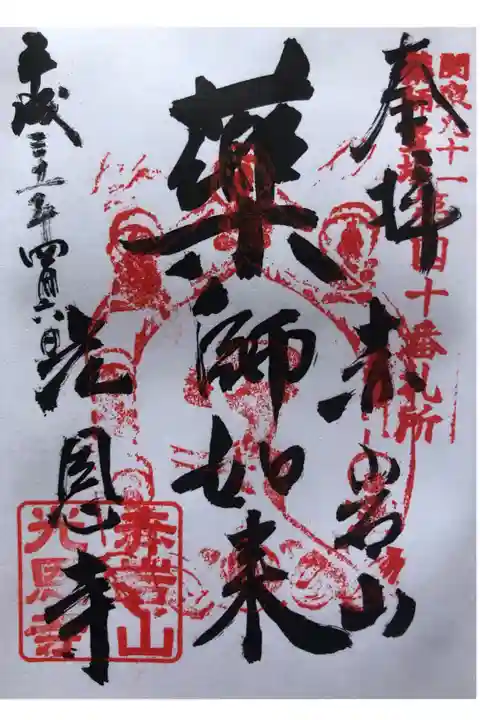 関東九十一
四十番札所
奉拝 赤岩山
藥師如来
光恩寺
平成二十五年四月六日
赤岩山
光恩寺